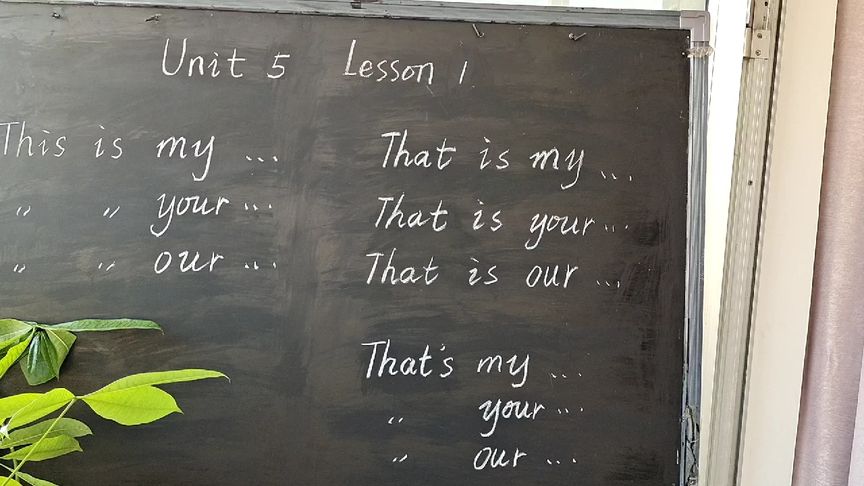 Unit 5 Lesson 1
This is my ...
" " your ...
" " our ...
That is my ...
That is your ...
That is our ...
That's my ...
" your ...
" our ...